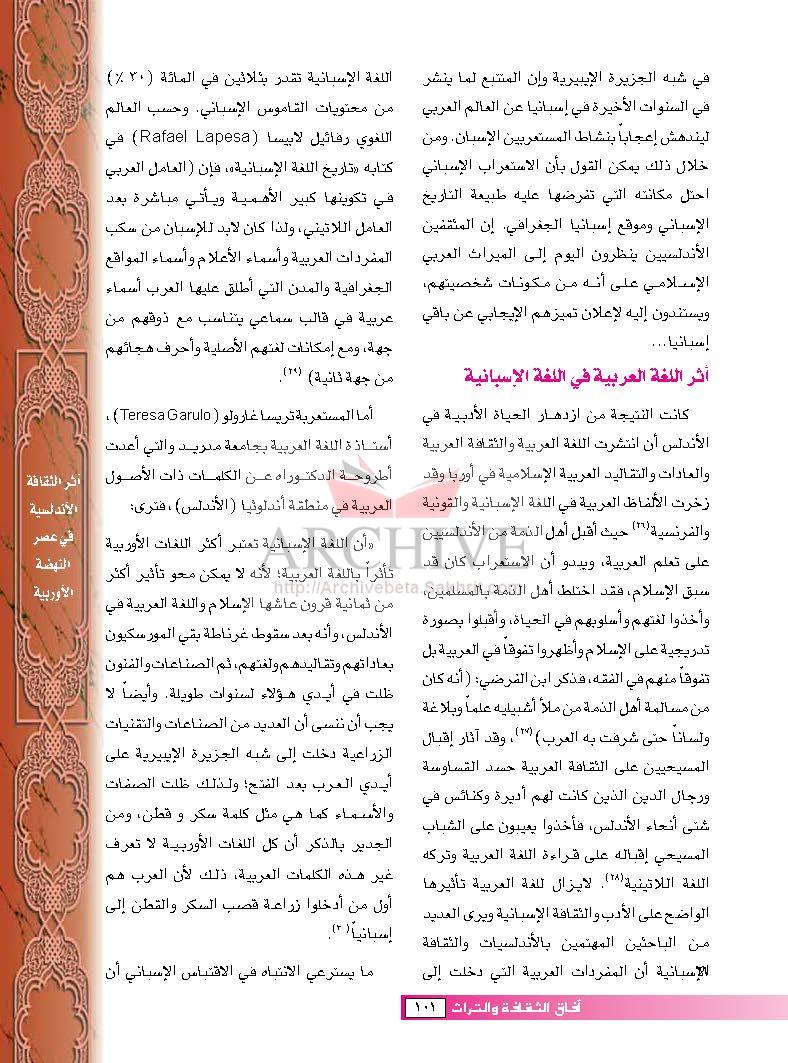 في شبه الجزيرة الإيبيرية وإن المتتبع لما ينشر
في السنوات الأخيرة في إسبانيا عن العالم العربي
ليندهش إعجاباً بنشاط المستعربين الإسبان. ومن
خلال ذلك يمكن القول بأن الاستعراب الإسباني
احتل مكانته التي تفرضها عليه طبيعة التاريخ
الإسباني وموقع إسبانيا الجغرافي. إن المثقفين
الأندلسيين ينظرون اليوم إلى الميراث العربي
الإسلامي على أنه من مكونات شخصيتهم،
ويستندون إليه لإعلان تميزهم الإيجابي عن باقي
إسبانيا...
أثر اللغة العربية في اللغة الإسبانية
كانت النتيجة من ازدهار الحياة الأدبية في
الأندلس أن انتشرت اللغة العربية والثقافة العربية
والعادات والتقاليد العربية الإسلامية في أوربا وقد
زخرت الألفاظ العربية في اللغة الإسبانية والقونية
والفرنسية(٢٦) حيث أقبل أهل الذمة من الأندلسيين
على تعلم العربية، ويبدو أن الاستعراب كان قد
سبق الإسلام، فقد اختلط أهل الذمة بالمسلمين،
وأخذوا لغتهم وأسلوبهم في الحياة، وأقبلوا بصورة
تدريجية على الإسلام وأظهروا تفوقاً في العربية بل
تفوقاً منهم في الفقه، فذكر ابن الفرضي: (أنه كان
من مسالمة أهل الذمة من ملأ أشبيليه علماً وبلاغة
ولساناً حتى شرفت به العرب)(٢٧)، وقد آثار إقبال
المسيحيين على الثقافة العربية حسد القساوسة
ورجال الدين الذين كانت لهم أديرة وكنائس في
شتى أنحاء الأندلس، فأخذوا يعيبون على الشباب
المسيحي إقباله على قراءة اللغة العربية وتركه
اللغة اللاتينية(٢٨). لايزال للغة العربية تأثيرها
الواضح على الأدب والثقافة الإسبانية ويرى العديد
من الباحثين المهتمين بالأندلسيات والثقافة
الإسبانية أن المفردات العربية التي دخلت إلى
اللغة الإسبانية تقدر بثلاثين في المائة (٣٠ ٪)
من محتويات القاموس الإسباني. وحسب العالم
اللغوي رفائيل لابيسا (Rafael Lapesa) في
كتابه «تاريخ اللغة الإسبانية»، فإن (العامل العربي
في تكوينها كبير الأهمية ويأتي مباشرة بعد
العامل اللاتيني، ولذا كان لابد للإسبان من سكب
المفردات العربية وأسماء الأعلام وأسماء المواقع
الجغرافية والمدن التي أطلق عليها العرب أسماء
عربية في قالب سماعي يتناسب مع ذوقهم من
جهة، ومع إمكانات لغتهم الأصلية وأحرف هجائهم
من جهة ثانية) (٢٩).
أما المستعربة تريسا غارولو (Teresa Garulo)،
أستاذة اللغة العربية بجامعة مدريد والتي أعدت
أطروحة الدكتوراه عن الكلمات ذات الأصول
العربية في منطقة أندلوثيا (الأندلس)، فترى:
«أن اللغة الإسبانية تعتبر أكثر اللغات الأوربية
تأثراً باللغة العربية؛ لأنه لا يمكن محو تأثير أكثر
من ثمانية قرون عاشها الإسلام واللغة العربية في
الأندلس، وأنه بعد سقوط غرناطة بقي المورسكيون
بعاداتهم وتقاليدهم ولغتهم، ثم الصناعات والفنون
ظلت في أيدي هؤلاء لسنوات طويلة. وأيضاً لا
يجب أن ننسى أن العديد من الصناعات والتقنيات
الزراعية دخلت إلى شبه الجزيرة الإيبيرية على
أيدي العرب بعد الفتح؛ ولذلك ظلت الصفات
والأسماء كما هي مثل كلمة سكر و قطن، ومن
الجدير بالذكر أن كل اللغات الأوربية لا تعرف
غير هذه الكلمات العربية، ذلك لأن العرب هم
أول من أدخلوا زراعة قصب السكر والقطن إلى
إسبانياً(٣٠).
ما يسترعي الانتباه في الاقتباس الإسباني أن
أثر الثقافة
الأندلسية
في عصر
النهضة
الأوربية
ARCHIVE
http://Archivebeta.Sakhrit.com
آفاق الثقافة والتراث ١٠١